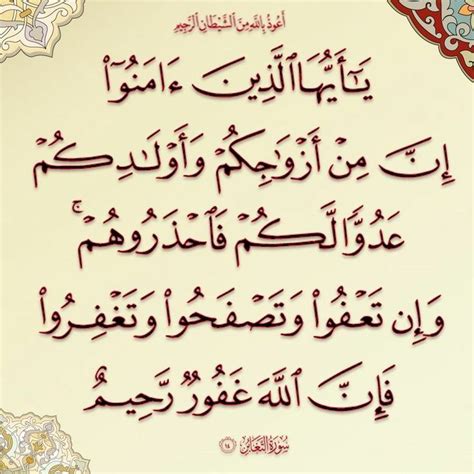 أَعُوذُ بِاللَّهِ مِنَ الشَّيْطَانِ الرَّجِيمِ
يَـٰٓأَيُّهَا ٱلَّذِينَ ءَامَنُوٓا۟
إِنَّ مِنْ أَزْوَٰجِكُمْ وَأَوْلَـٰدِكُمْ
عَدُوًّا لَّكُمْ فَٱحْذَرُوهُمْ ۚ
وَإِن تَعْفُوا۟ وَتَصْفَحُوا۟ وَتَغْفِرُوا۟
فَإِنَّ ٱللَّهَ غَفُورٌ رَّحِيمٌ
سُورَةُ التَّغَابُنِ ١٤